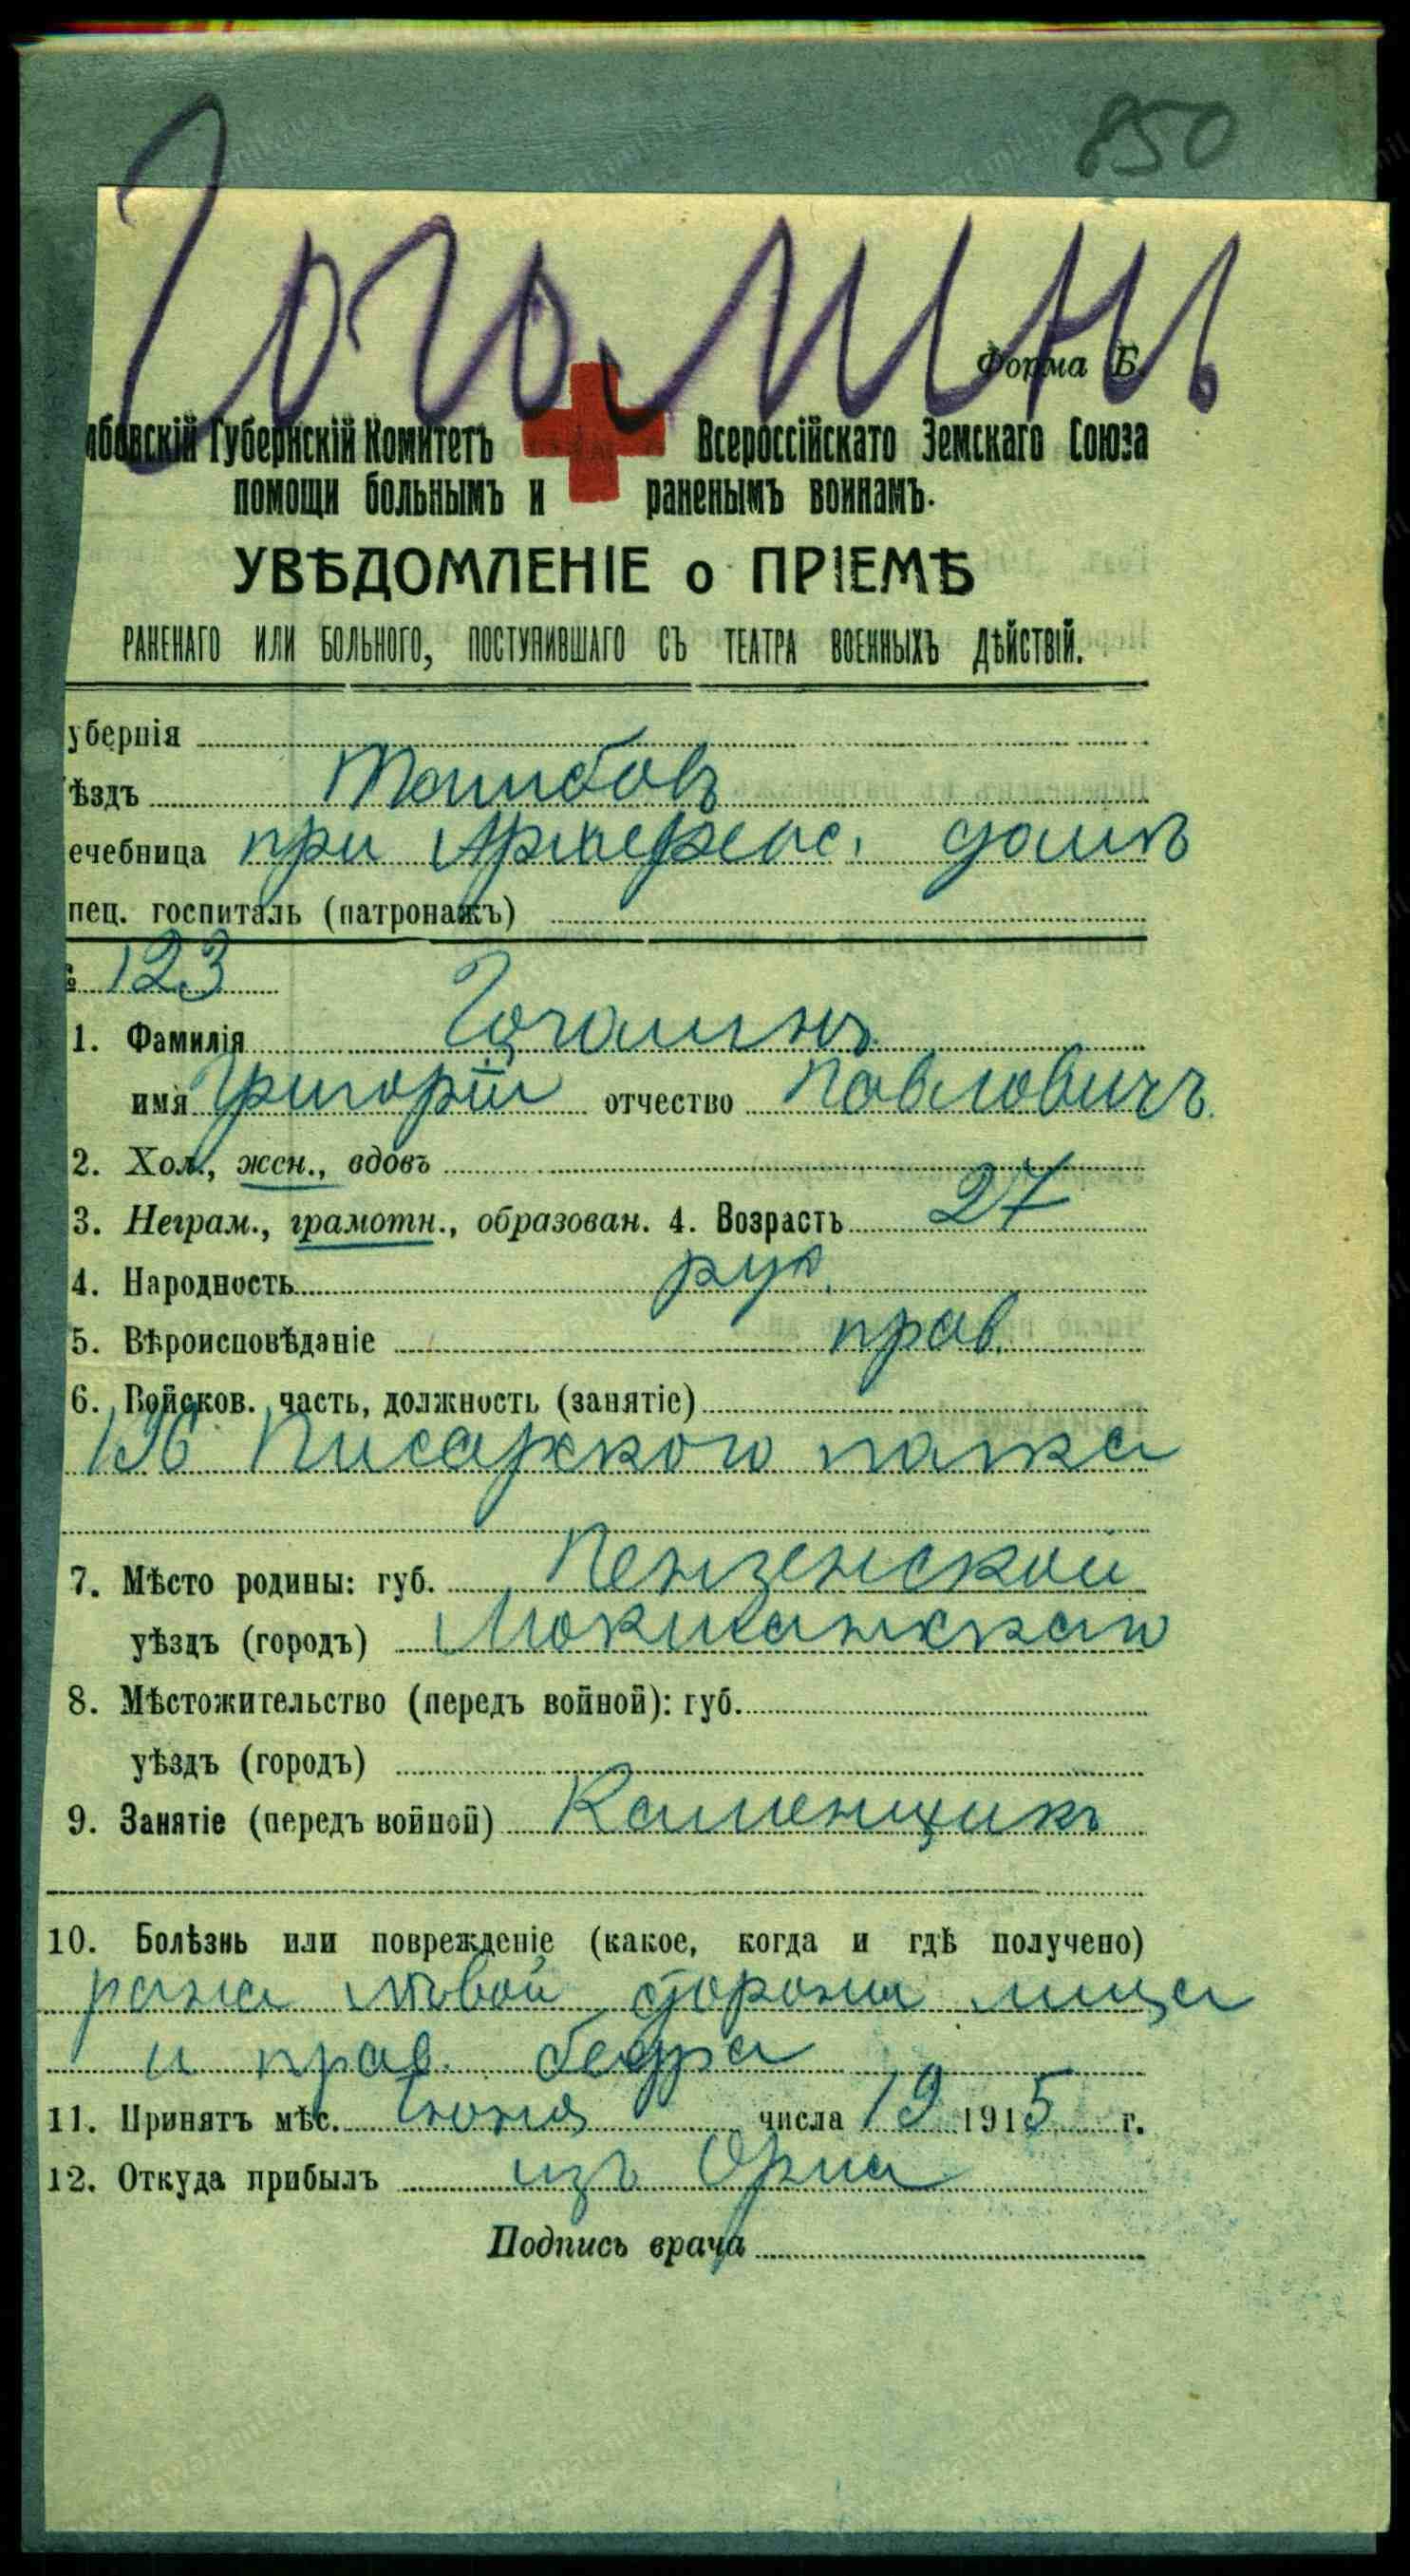 850
Гогаинъ
Форма Б.
мбовскій Губернскій Комитетъ Всероссійскаго Земскаго Союза
помощи больнымъ и раненымъ воинамъ.
УВѢДОМЛЕНІЕ о ПРІЕМѢ
РАНЕНАГО ИЛИ БОЛЬНОГО, ПОСТУПИВШАГО СЪ ТЕАТРА ВОЕННЫХЪ ДѢЙСТВІЙ.
убернія
ѣздъ Тамбовъ
ечебница при Архіерейс. домѣ
пец. госпиталь (патронажъ)
123
1. Фамилія
имя Григорій отчество Павловичъ
2. Хол., жен., вдовъ
3. Неграм., грамотн., образован. 4. Возрастъ 27
4. Народность рус.
5. Вѣроисповѣданіе прав.
6. Войсков. часть, должность (занятіе)
полка
7. Мѣсто родины: губ. Пензенской
уѣздъ (городъ) Мокшанскаго
8. Мѣстожительство (передъ войной): губ.
уѣздъ (городъ)
9. Занятіе (передъ войной) Каменщикъ
10. Болѣзнь или поврежденіе (какое, когда и гдѣ получено)
рана лѣвой стороны лица
и прав. бедра
11. Принятъ мѣс. Іюня числа 19 1915 г.
12. Откуда прибылъ изъ Орла
Подпись врача